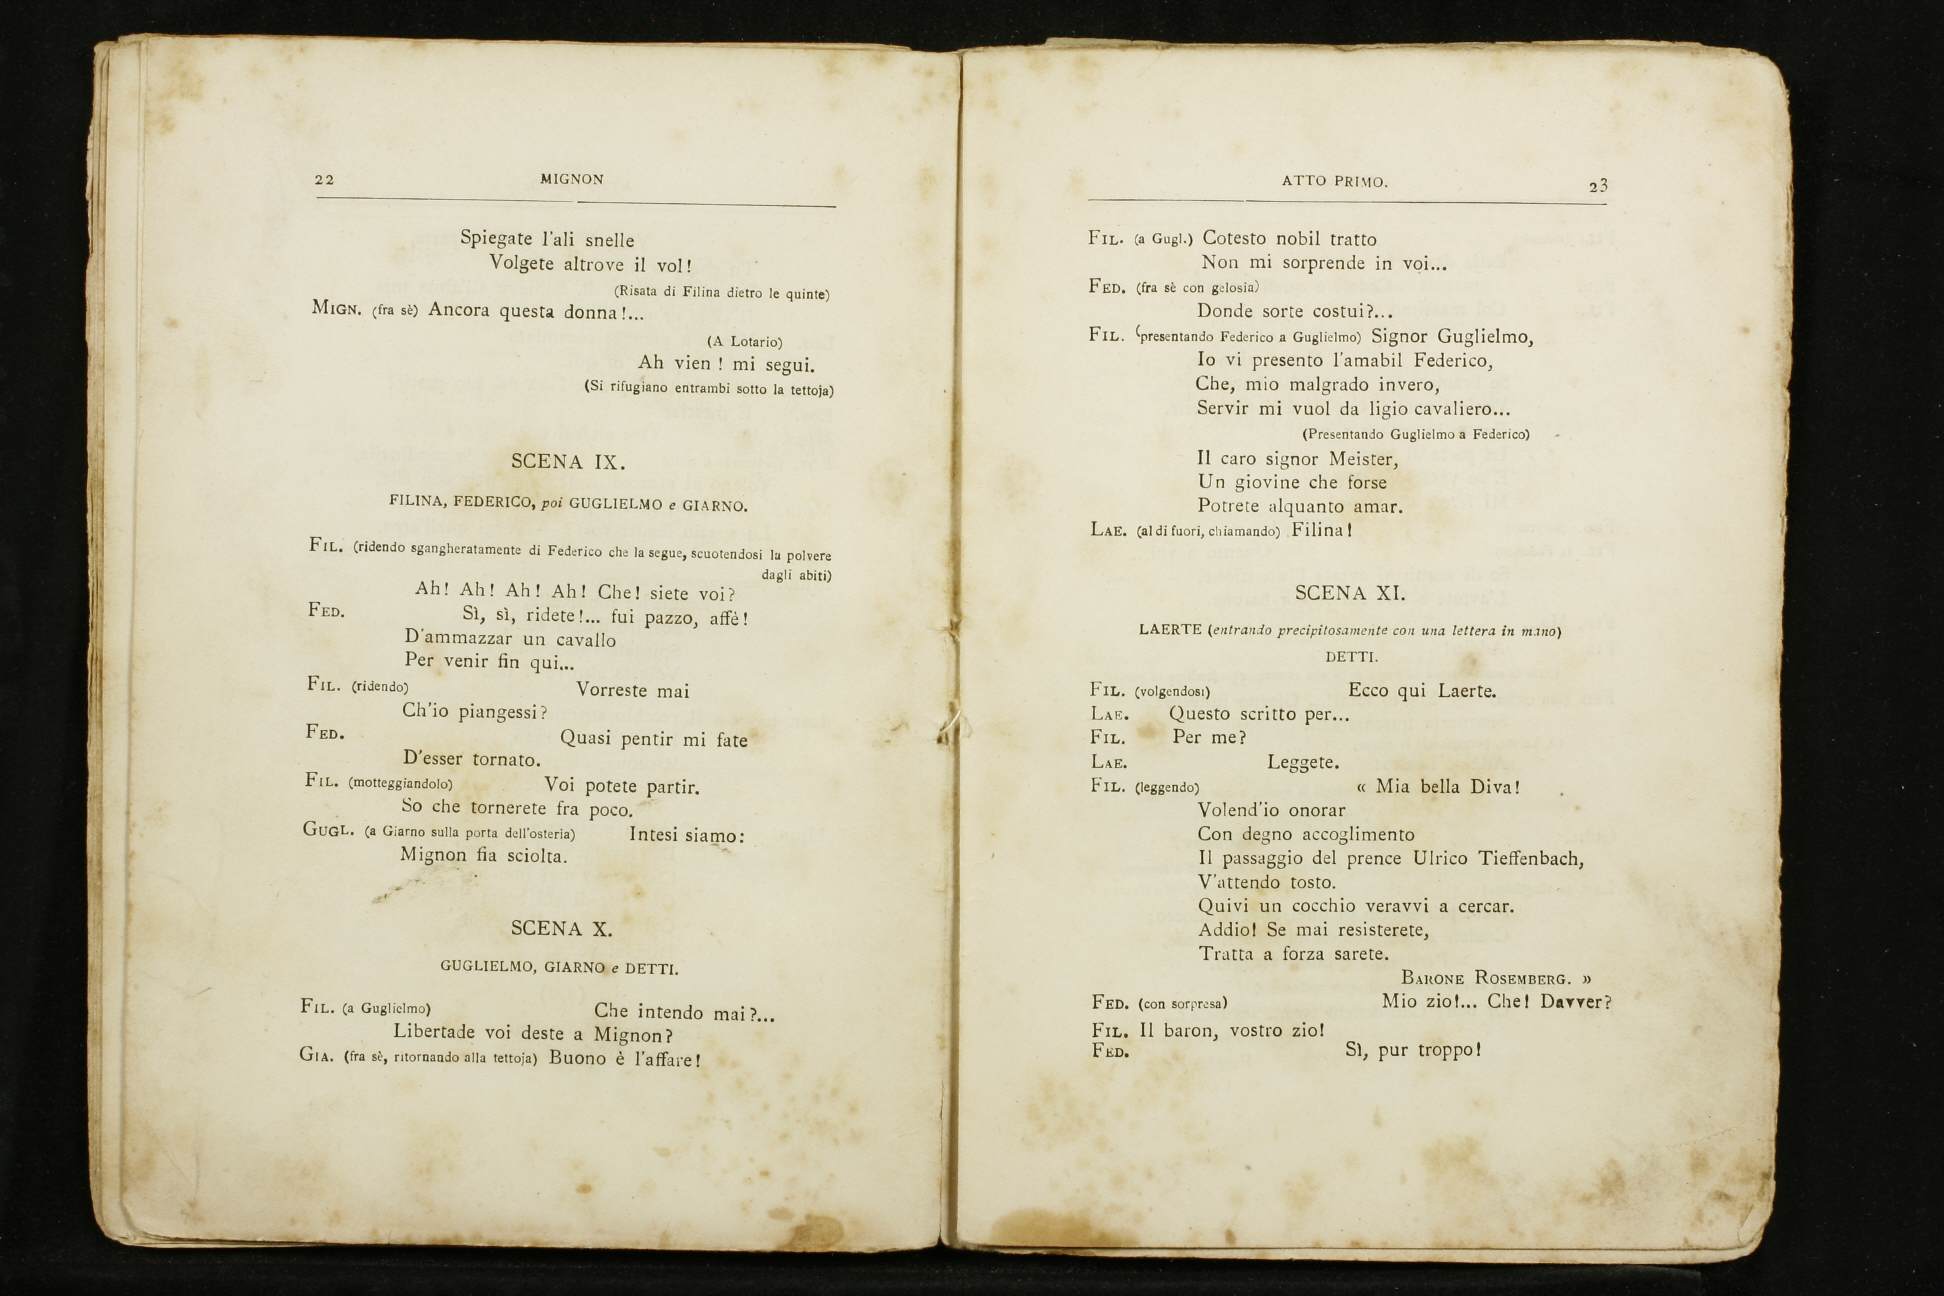 22 MIGNON
Spiegate l'ali snelle
Volgete altrove il vol!
(Risata di Filina dietro le quinte)
MIGN. (fra sè) Ancora questa donna!...
(A Lotario)
Ah vien! mi segui.
(Si rifugiano entrambi sotto la tettoja)
SCENA IX.
FILINA, FEDERICO, poi GUGLIELMO e GIARNO.
FIL. (ridendo sgangheratamente di Federico che la segue, scuotendosi la polvere
dagli abiti)
Ah! Ah! Ah! Ah! Che! siete voi?
FED. Sì, sì, ridete!... fui pazzo, affè!
D'ammazzar un cavallo
Per venir fin qui...
FIL. (ridendo) Vorreste mai
Ch'io piangessi?
FED. Quasi pentir mi fate
D'esser tornato.
FIL. (motteggiandolo) Voi potete partir.
So che tornerete fra poco.
GUGL. (a Giarno sulla porta dell'osteria) Intesi siamo:
Mignon fia sciolta.
SCENA X.
GUGLIELMO, GIARNO e DETTI.
FIL. (a Guglielmo) Che intendo mai?...
Libertade voi deste a Mignon?
GIA. (fra sè, ritornando alla tettoja) Buono è l'affare!
ATTO PRIMO. 23
FIL. (a Gugl.) Cotesto nobil tratto
Non mi sorprende in voi...
FED. (fra sè con gelosia)
Donde sorte costui?...
FIL. (presentando Federico a Guglielmo) Signor Guglielmo,
Io vi presento l'amabil Federico,
Che, mio malgrado invero,
Servir mi vuol da ligio cavaliero...
(Presentando Guglielmo a Federico)
Il caro signor Meister,
Un giovine che forse
Potrete alquanto amar.
LAE. (al di fuori, chiamando) Filina!
SCENA XI.
LAERTE (entrando precipitosamente con una lettera in mano)
DETTI.
FIL. (volgendosi) Ecco qui Laerte.
LAE. Questo scritto per...
FIL. Per me?
LAE. Leggete.
FIL. (leggendo) « Mia bella Diva!
Volend'io onorar
Con degno accoglimento
Il passaggio del prence Ulrico Tieffenbach,
V'attendo tosto.
Quivi un cocchio veravvi a cercar.
Addio! Se mai resisterete,
Tratta a forza sarete.
BARONE ROSEMBERG. »
FED. (con sorpresa) Mio zio!... Che! Davver?
FIL. Il baron, vostro zio!
FED. Sì, pur troppo!